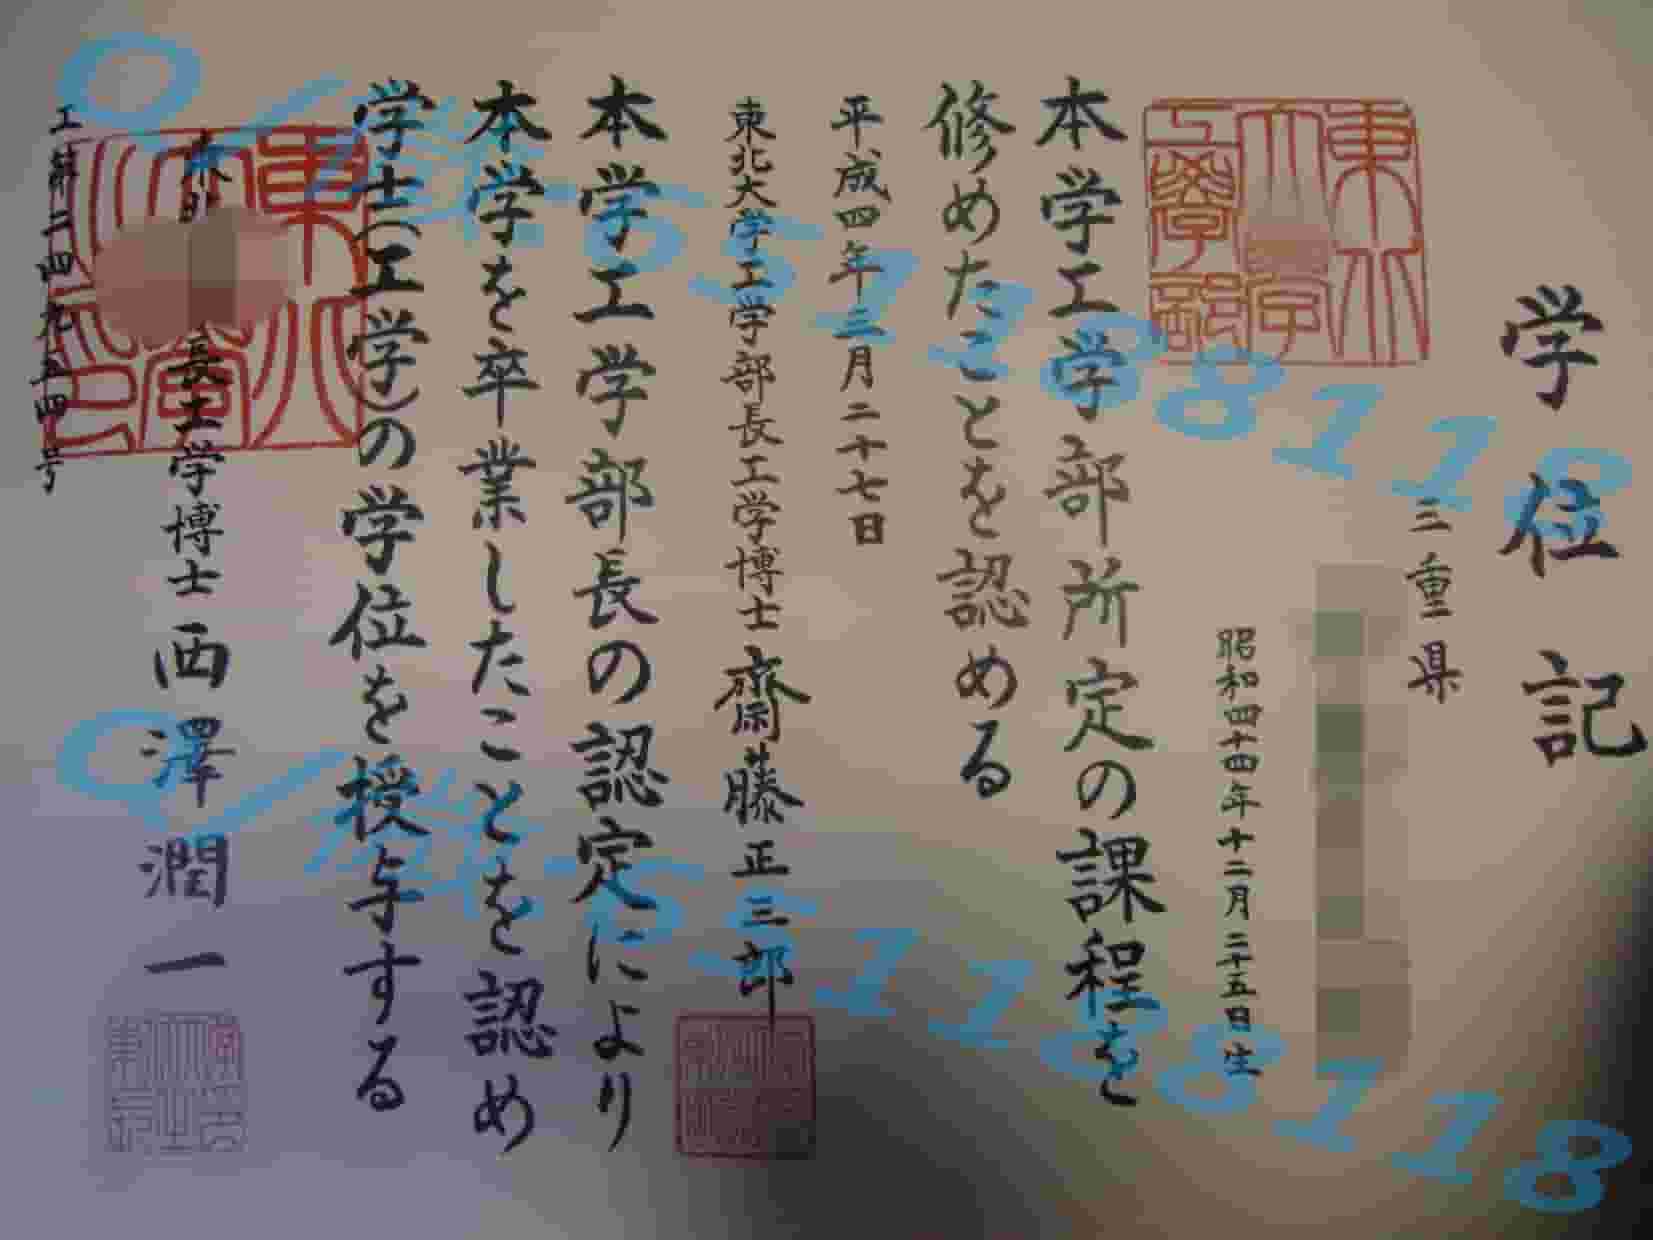 学位記
三重県
昭和四十四年十二月二十五日生
本学工学部所定の課程を
修めたことを認める
平成四年三月二十七日
東北大学工学部長工学博士 齋藤正三郎
本学工学部長の認定により
本学を卒業したことを認め
学士(工学)の学位を授与する
長工学博士 西澤潤一
工解二四九五四号